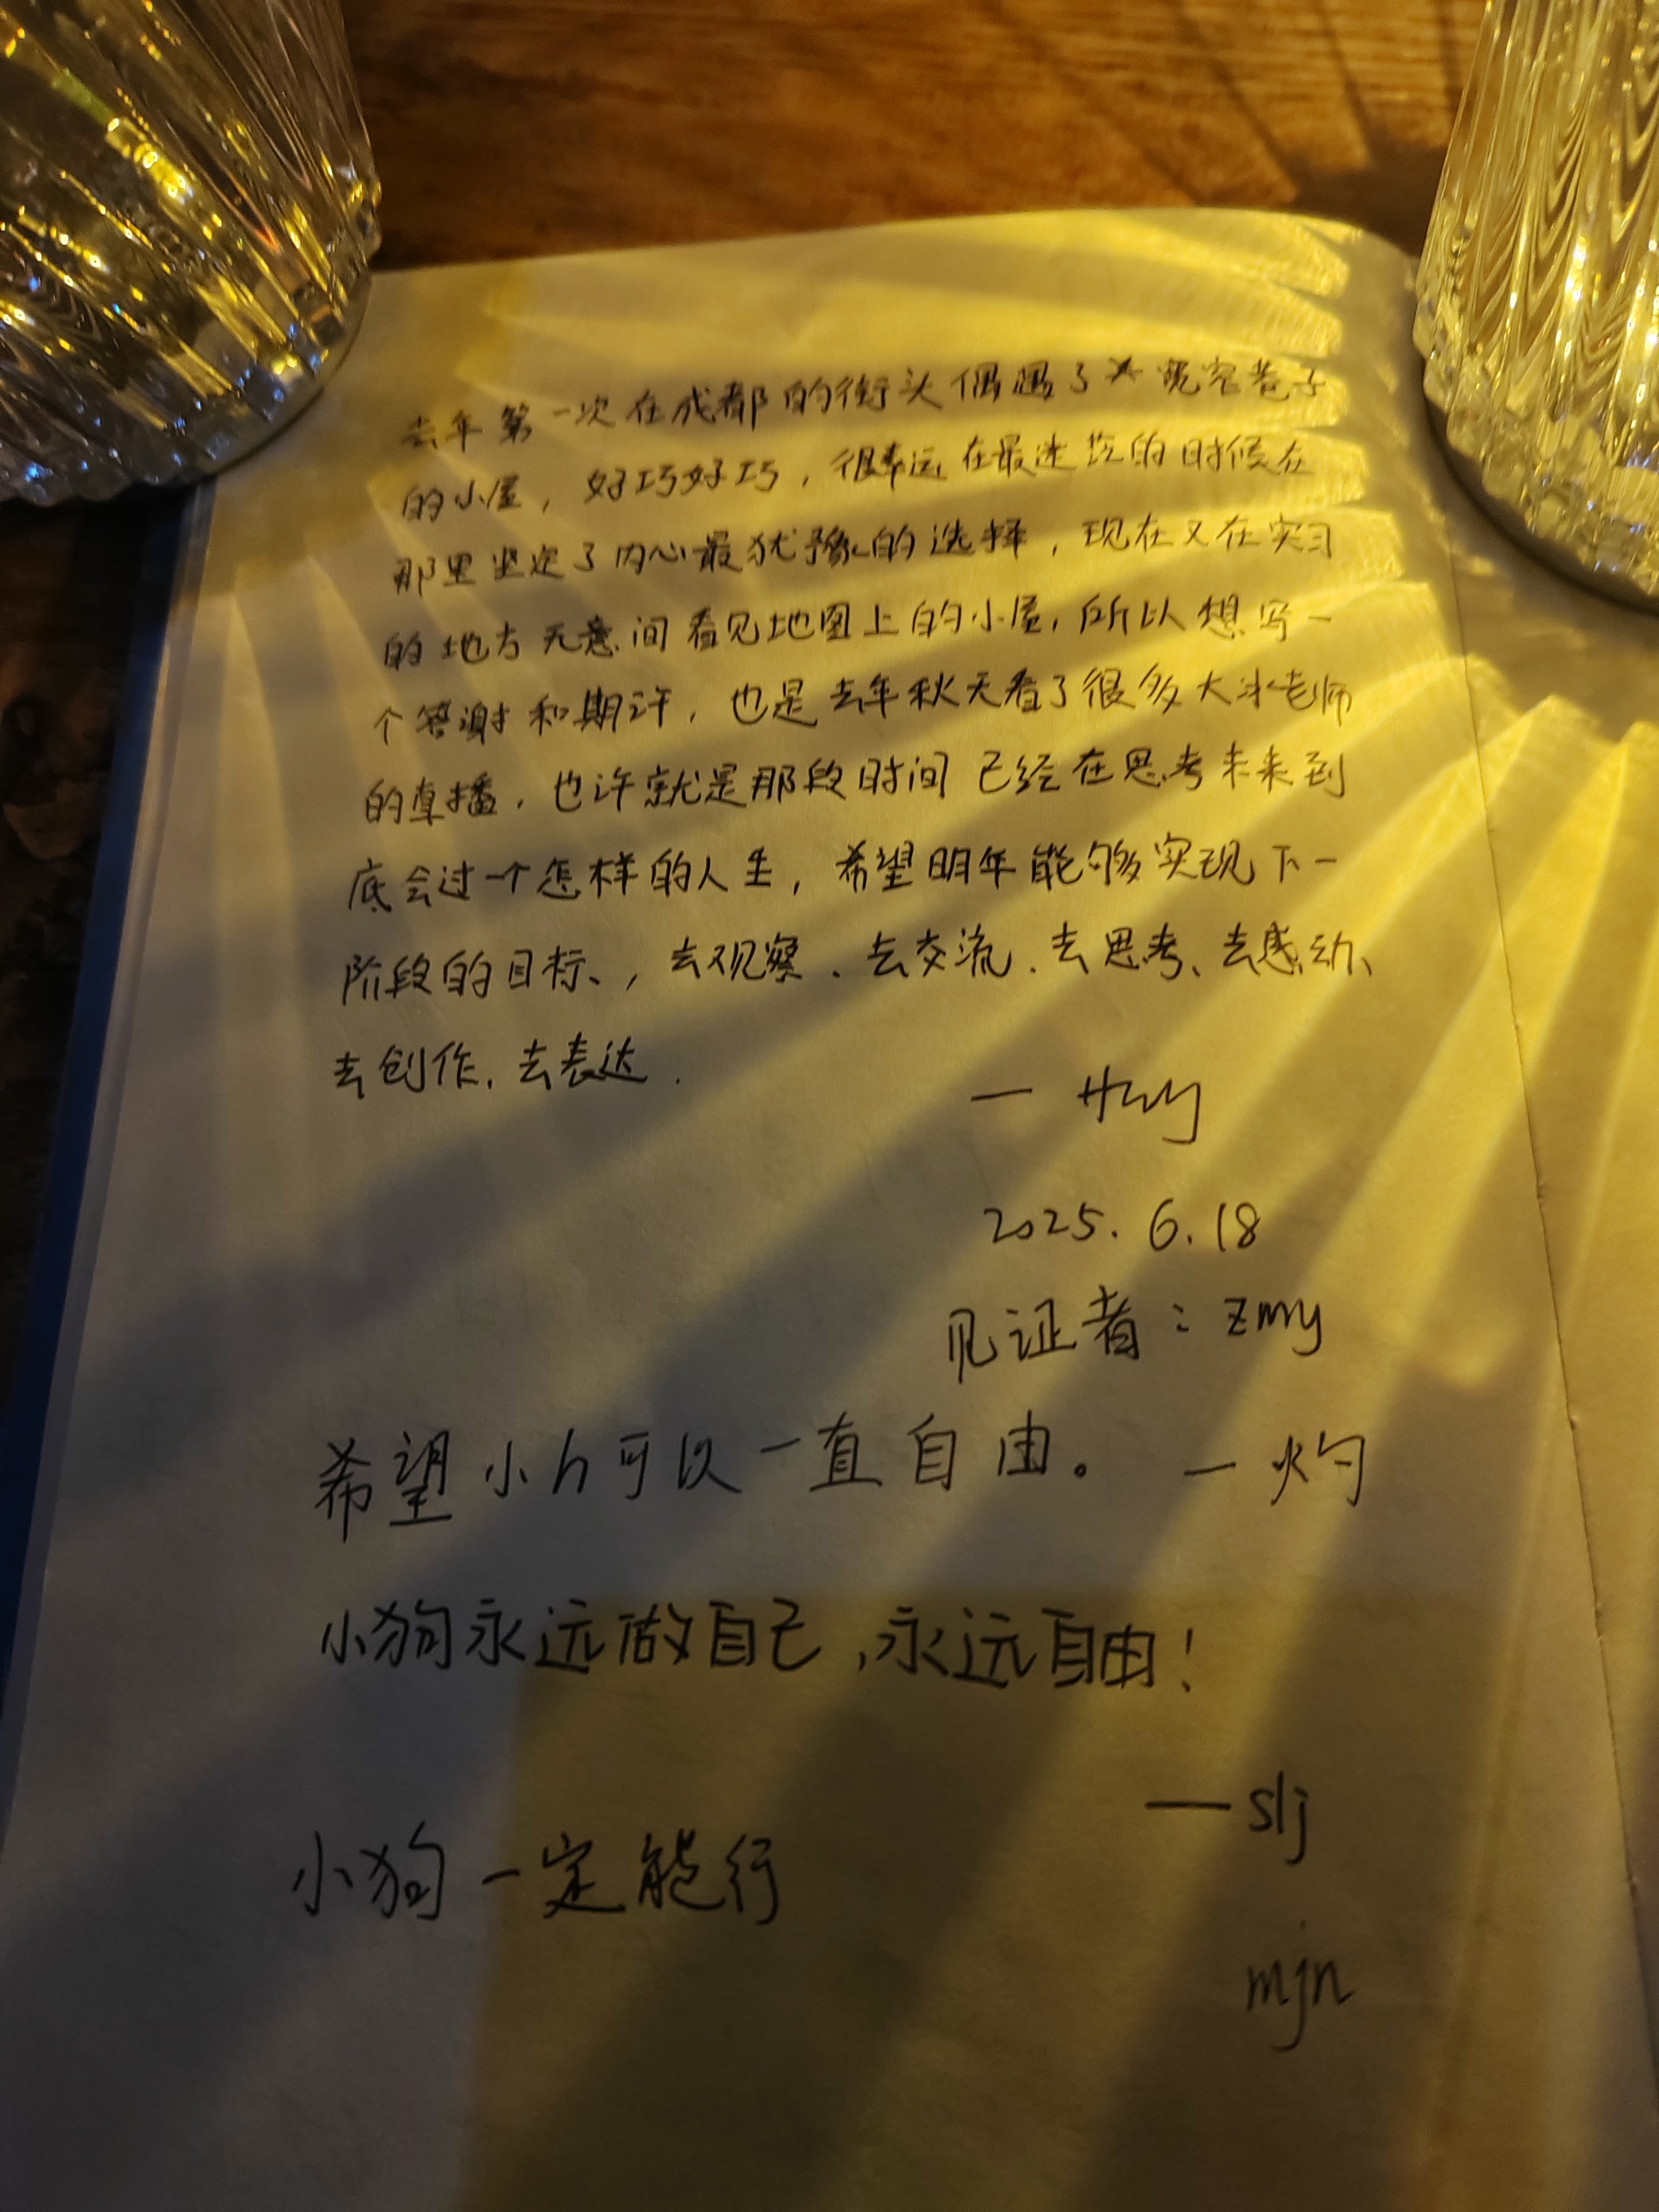 去年第一次在成都的街头偶遇了宽窄巷子
的小屋，好巧好巧，很幸运在最迷茫的时候在
那里坚定了内心最犹豫的选择，现在又在实习
的地方无意间看见地图上的小屋，所以想写一
个答谢和期许，也是去年秋天看了很多大冰老师
的直播，也许就是那段时间已经在思考未来到
底会过一个怎样的人生，希望明年能够实现下一
阶段的目标、，去观察、去交流、去思考、去感动、
去创作、去表达.
2025.6.18
见证者：zmy
希望小h可以一直自由。 —灼
小狗永远做自己，永远自由！
—slj
小狗一定能行
mjn